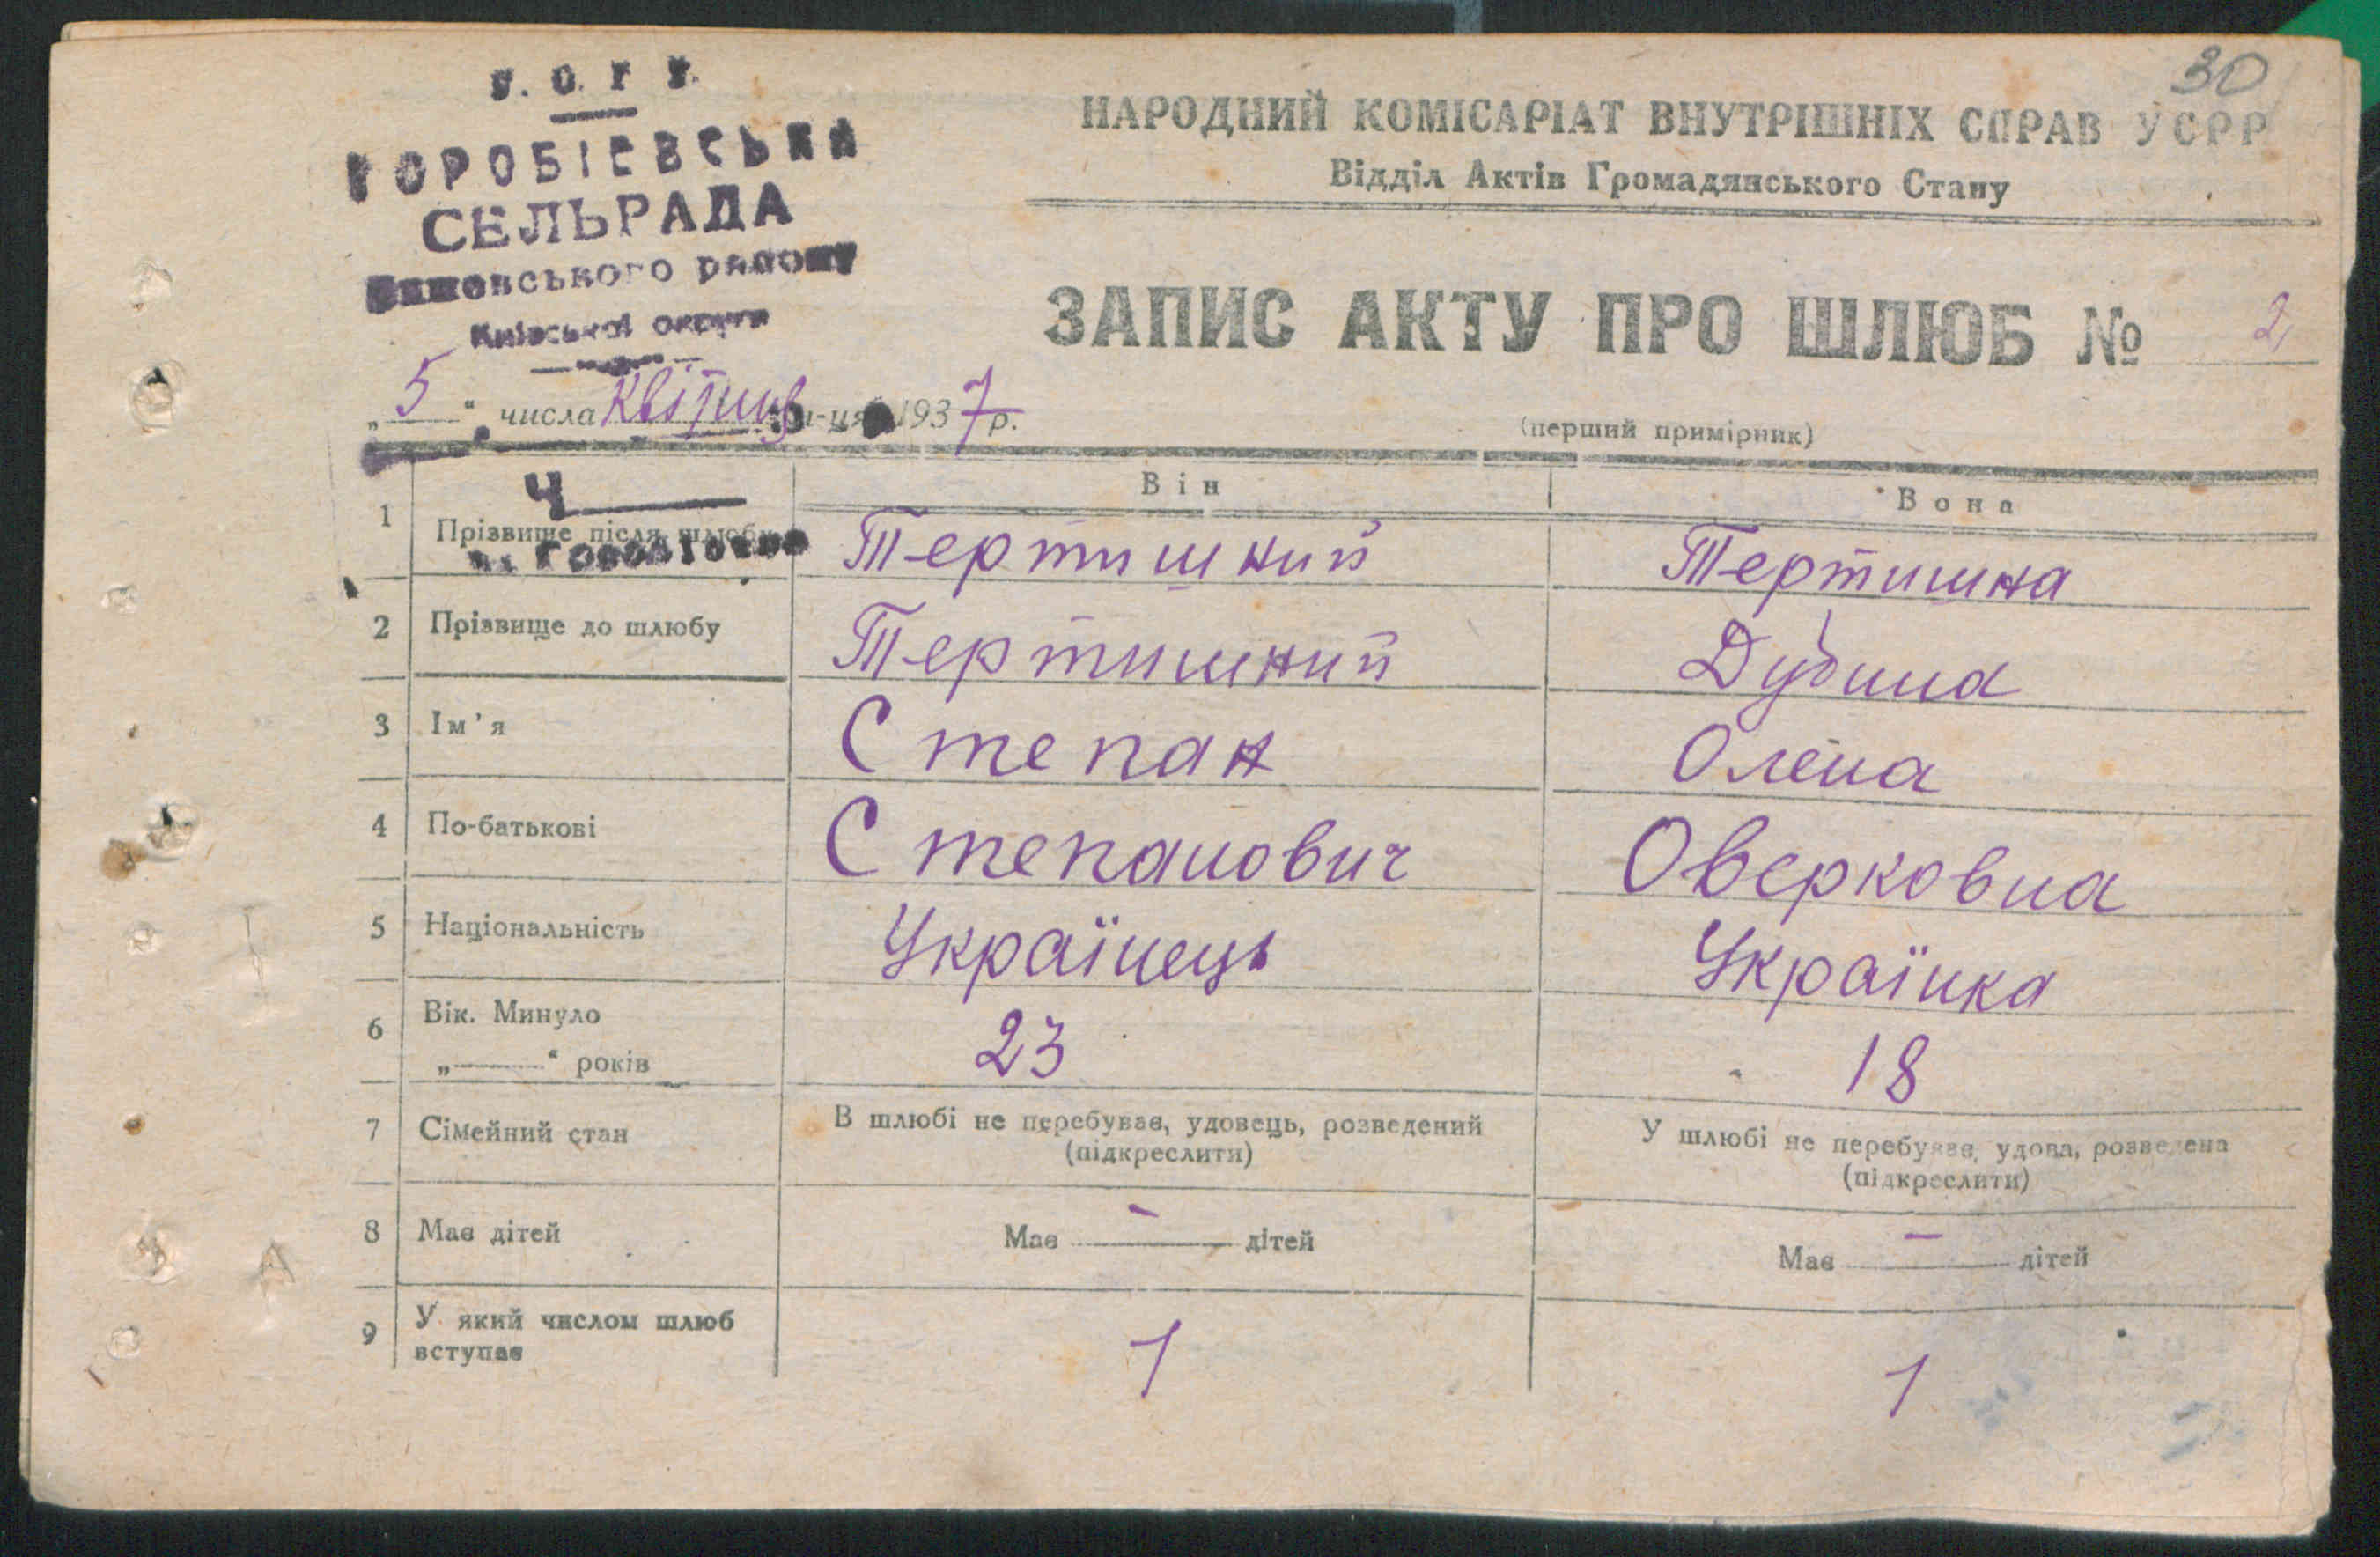 30
НАРОДНИЙ КОМІСАРІАТ ВНУТРІШНІХ СПРАВ УСРР
Відділ Актів Громадянського Стану
СЕЛЬРАДА
ЗАПИС АКТУ ПРО ШЛЮБ № 2
„5“ числа 1937 р.
(перший примірник)
Він
Вона
1 Прізвище після шлюбу Тертишний Тертишна
2 Прізвище до шлюбу Тертишний Дубина
3 Ім'я Степан Олена
4 По-батькові Степанович Оверковна
5 Національність Українець Українка
6 Вік. Минуло
„——“ років 23 18
7 Сімейний стан В шлюбі не перебуває, удовець, розведений (підкреслити) У шлюбі не перебуває, удова, розведена (підкреслити)
8 Має дітей Має — дітей Має — дітей
9 У який числом шлюб
вступає 1 1